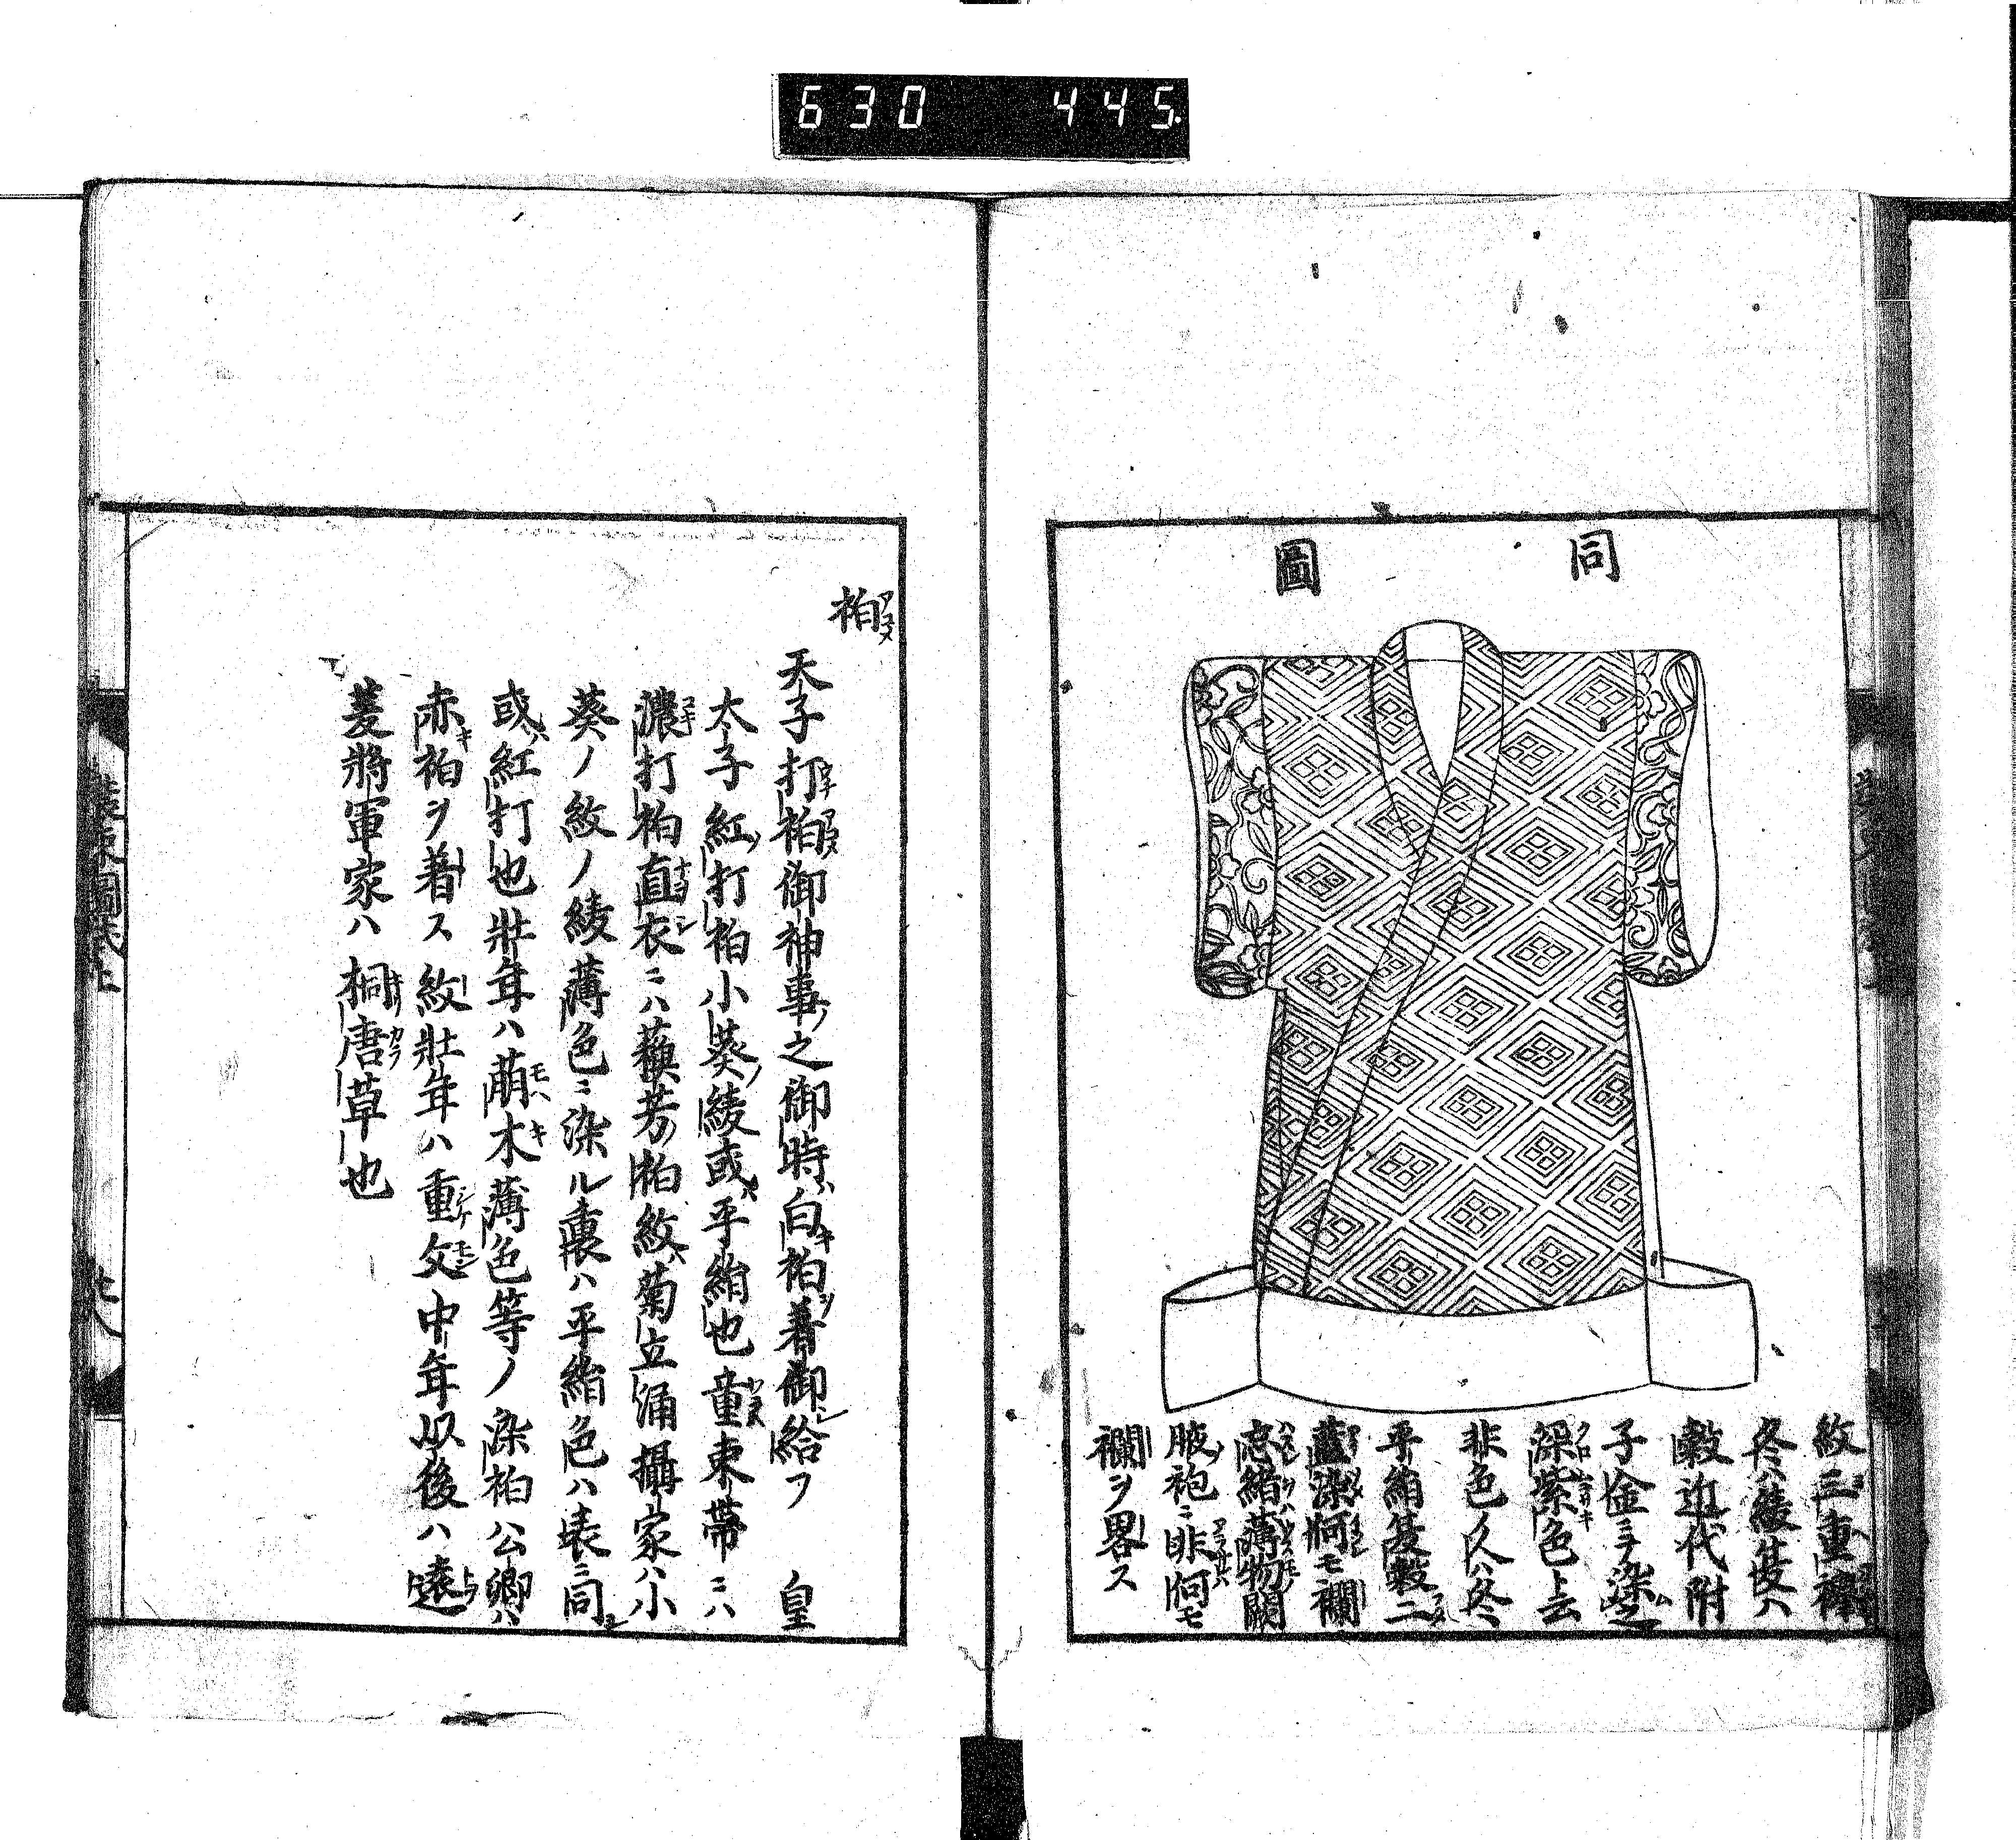 630 445
同圖
紋三重襷
冬ハ綾夏ハ
縠近代附
子金ミヲ染之
深紫色ト云
非色ノ人ハ冬
平絹夏縠ニ
藍染何モ襴
忘緒薄物闕
腋袍ニ非何モ
襴ヲ畧ス
袙
天子打袙御神事之御時ハ白キ袙ヲ着御シ給フ 皇
太子紅ノ打袙小葵ノ綾或ハ平絹也童束帶ニハ
濃打袙直衣ニハ蘓芳ノ袙紋ハ菊立涌攝家ハ小
葵ノ紋ノ綾薄色ニ染ル裏ハ平絹色ハ表ニ同シ
或ハ紅打也壯年ハ萠木薄色等ノ染袙公卿ハ
赤キ袙ヲ着ス紋壯年ハ重文中年以後ハ遠
菱將軍家ハ桐唐草也